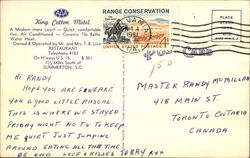 AAA
King Cotton Motel
A Modern stone court — Quiet, comfortable
tire, Air Conditioned — Ceramic Tile Baths,
Water Heat.
Owned & Operated by Mr. and Mrs. T. B. Livin
RESTAURANT
Telephone 4182
On Hi'ways U.S. 15 & 301
1½ Miles South of
SUMMERTON, S.C.
RANGE CONSERVATION
1961
UNITED STATES POSTAGE
HI RANDY
HOPE YOU ARE FEWEARE
YOU GOOD LITTLE RASCAL
THIS IS WHERE WE STAYED
FRIDAY NIGHT. NO TV TO KEEP
ME QUIET JUST JUMPING
AROUND. EATING ALL THE TIME
BE GOOD LOVE & KISSES TERRY XXX
MASTER RANDY MCMILLAN
418 MAIN ST.
TORONTO ONTARIO
CANADA